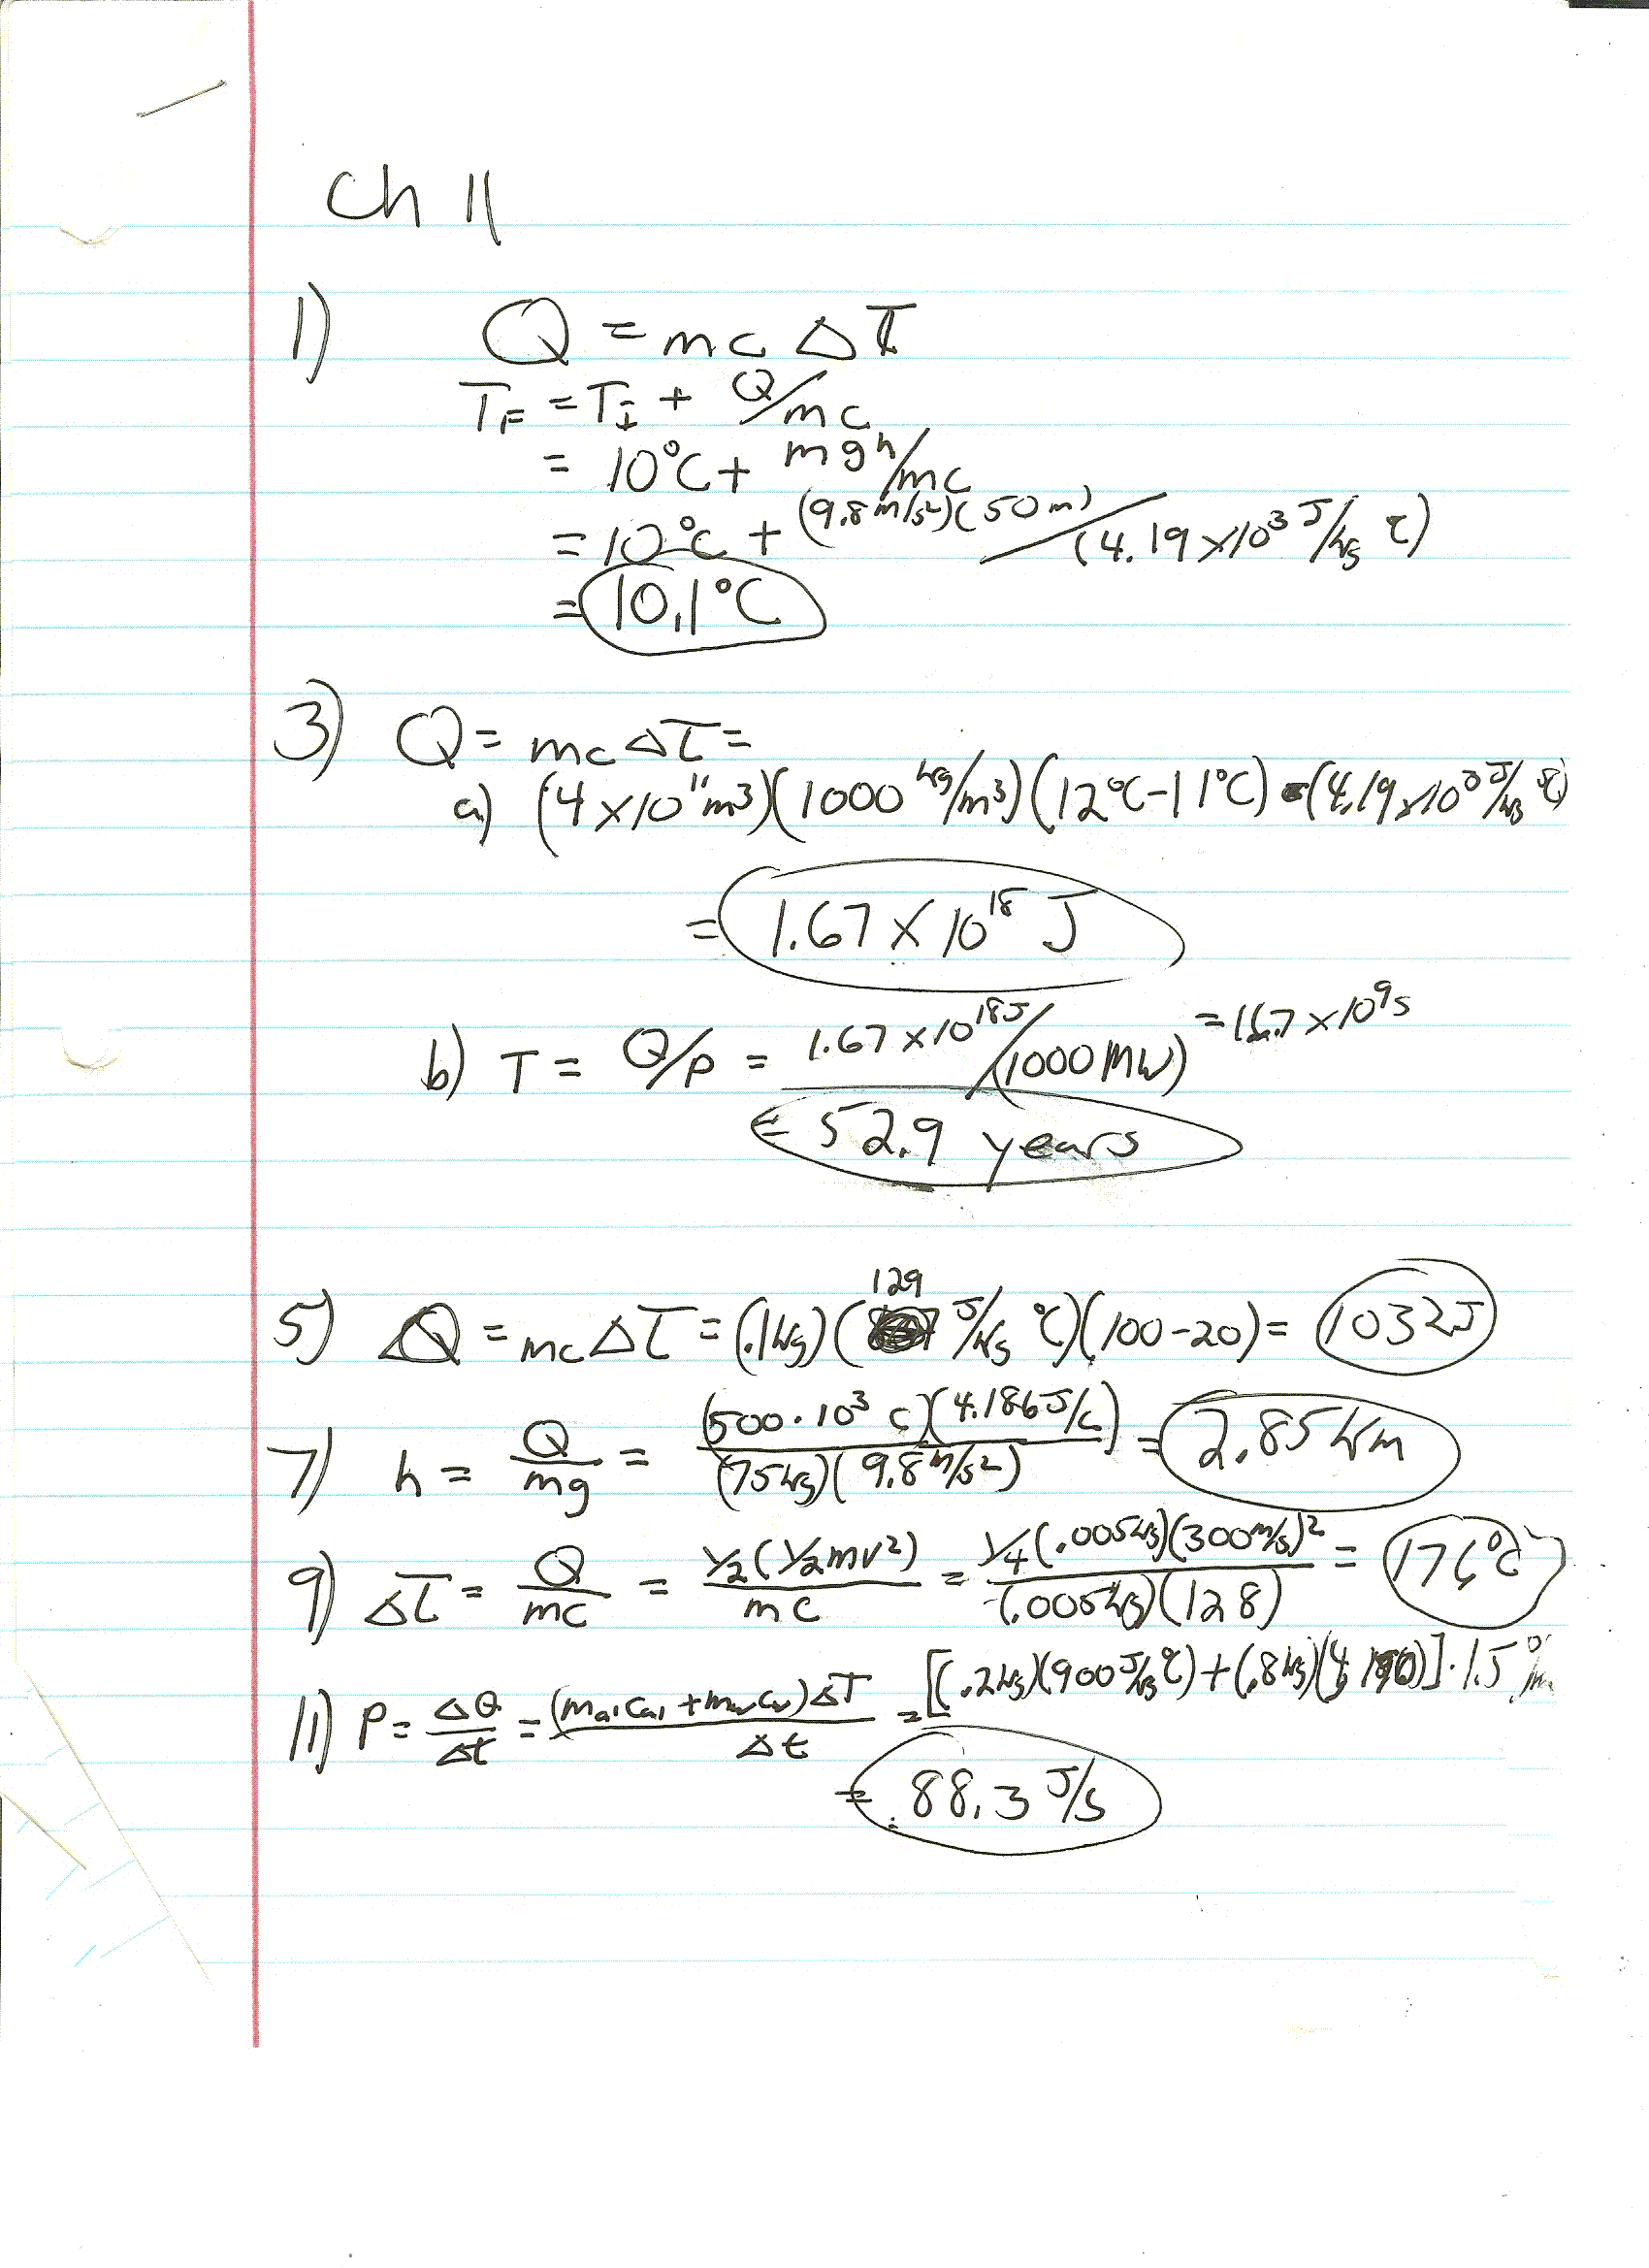 Ch 11
1) Q = mc ΔT
T_F = T_i + Q/mc
= 10°C + mgh/mc
= 10°C + (9.8 m/s²)(50 m)/(4.19 x10³ J/kg °C)
= 10.1°C
3) Q = mc ΔT =
a) (4 x 10¹¹ m³)(1000 kg/m³)(12°C-11°C) (4.19 x10³ J/kg °C)
= 1.67 X 10¹⁸ J
b) T = Q/P = 1.67 x10¹⁸ J/(1000 MW) = 16.7 x 10⁹ s
= 52.9 years
5) ΔQ = mc ΔT = (.1kg)(129 J/kg °C)(100-20) = 1032J
7) h = Q/mg = (500·10³ c)(4.186 J/c)/(75kg)(9.8 m/s²) = 2.85 km
9) ΔT = Q/mc = ½(½mv²)/mc = ¼(.005kg)(300m/s)²/(.005kg)(128) = 176°C
11) P = ΔQ/Δt = (m_al c_al + m_w c_w)ΔT/Δt = [(.2kg)(900 J/kg °C) + (.8kg)(4,190)]·1.5
= 88.3 J/s